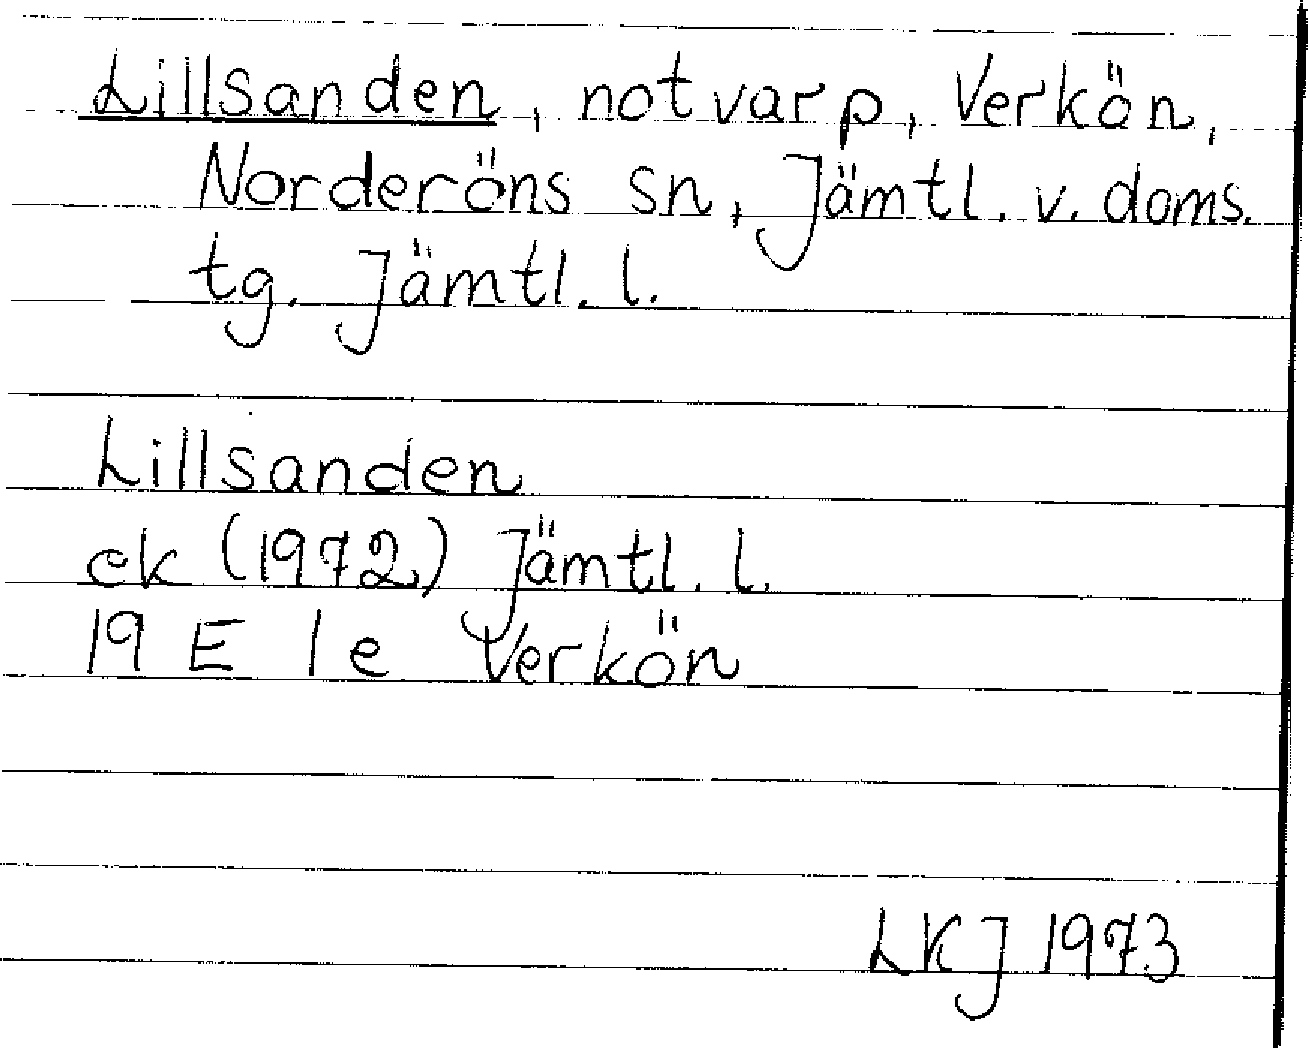 Lillsanden, notvarp, Verkön,
Norderöns sn, Jämtl. v. doms.
tg. Jämtl. l.
Lillsanden
ek (1972) Jämtl. l.
19 E 1 e Verkön
LKJ 1973